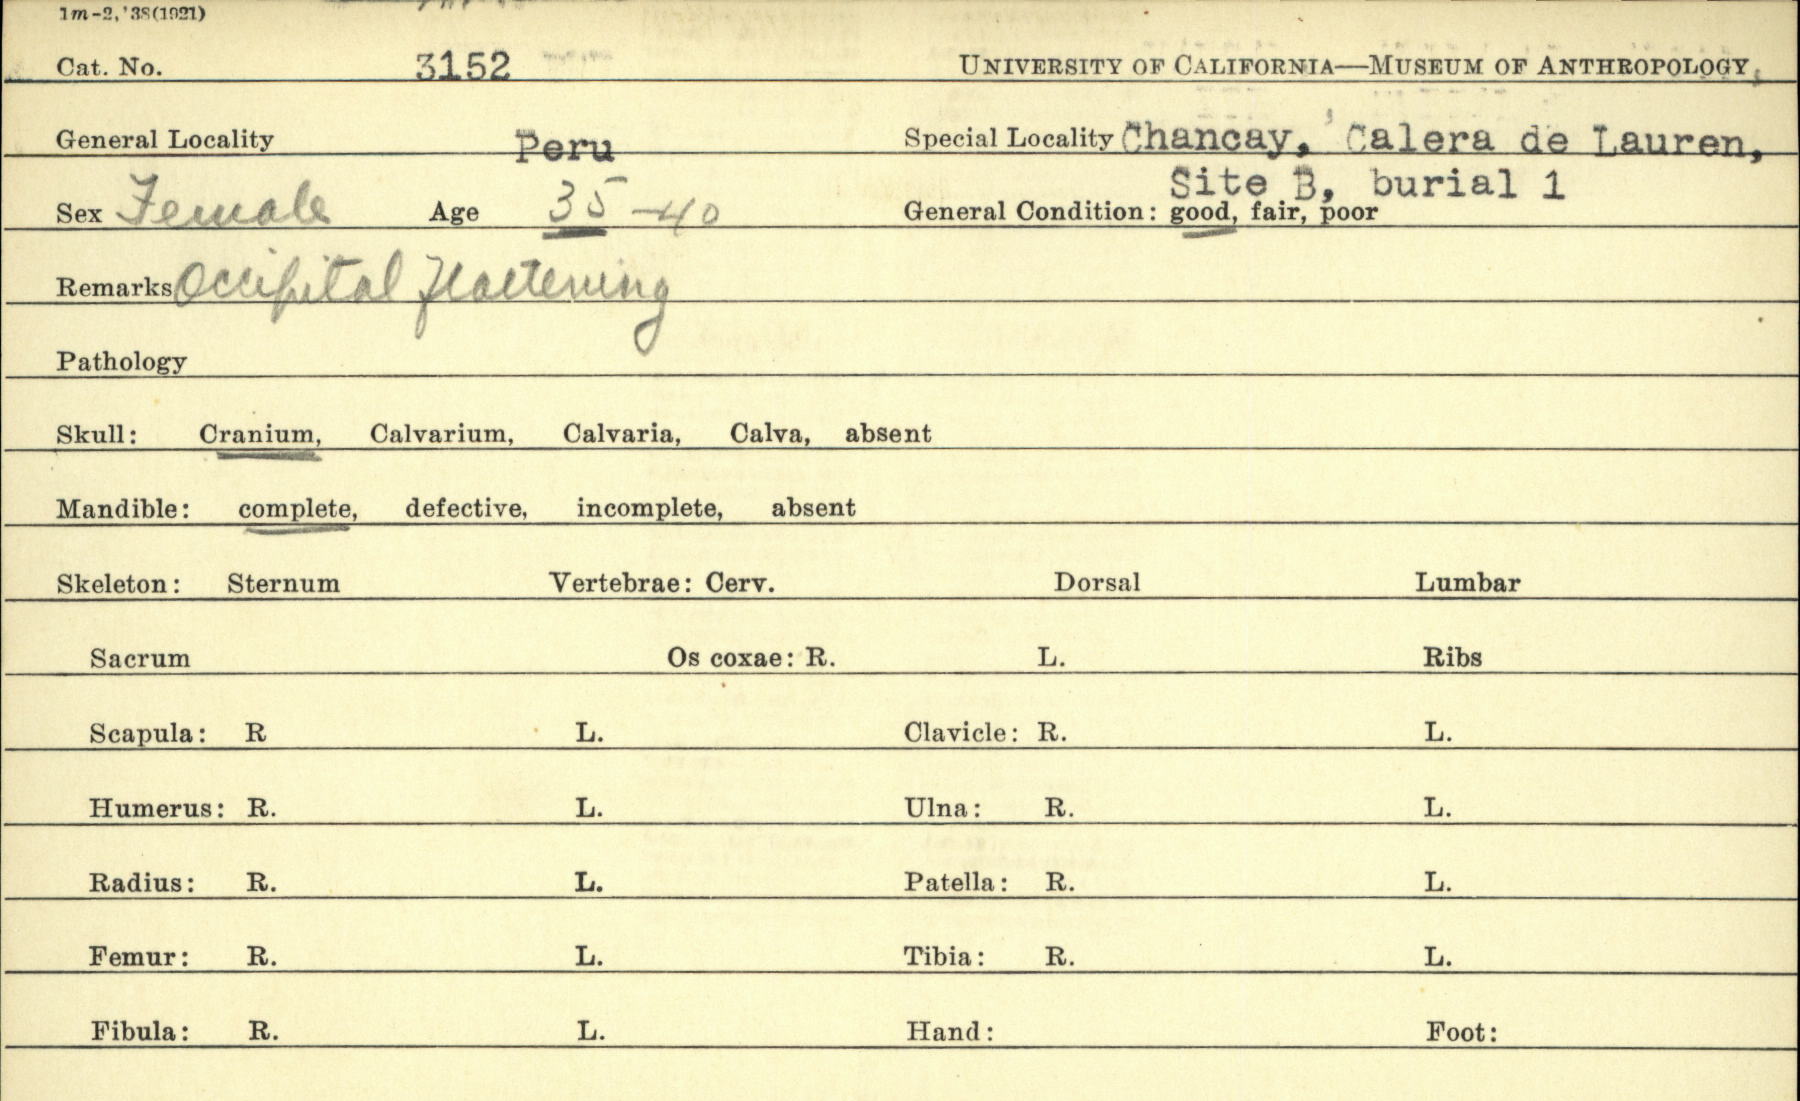 1m-2,'38(1921)
Cat. No. 3152 UNIVERSITY OF CALIFORNIA—MUSEUM OF ANTHROPOLOGY
General Locality Peru Special Locality Chancay, Calera de Lauren,
Site B, burial 1
Sex Female Age 35-40 General Condition: good, fair, poor
Remarks Occipital flattening
Pathology
Skull: Cranium, Calvarium, Calvaria, Calva, absent
Mandible: complete, defective, incomplete, absent
Skeleton: Sternum Vertebrae: Cerv. Dorsal Lumbar
Sacrum Os coxae: R. L. Ribs
Scapula: R L. Clavicle: R. L.
Humerus: R. L. Ulna: R. L.
Radius: R. L. Patella: R. L.
Femur: R. L. Tibia: R. L.
Fibula: R. L. Hand: Foot: